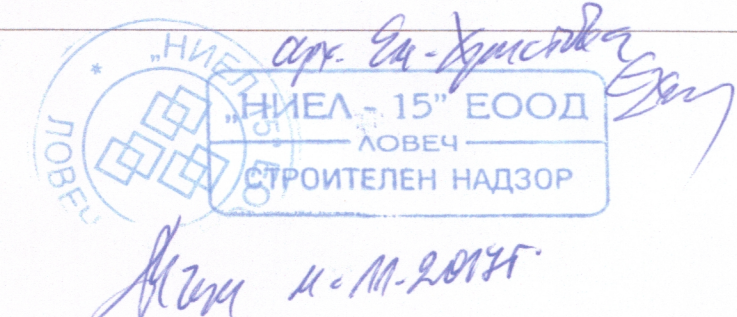 арх. Ем. Христова
„НИЕЛ - 15” ЕООД
ЛОВЕЧ
СТРОИТЕЛЕН НАДЗОР
* „НИЕЛ 15” ЕО
ЛОВЕЧ
м. 11.2017г.